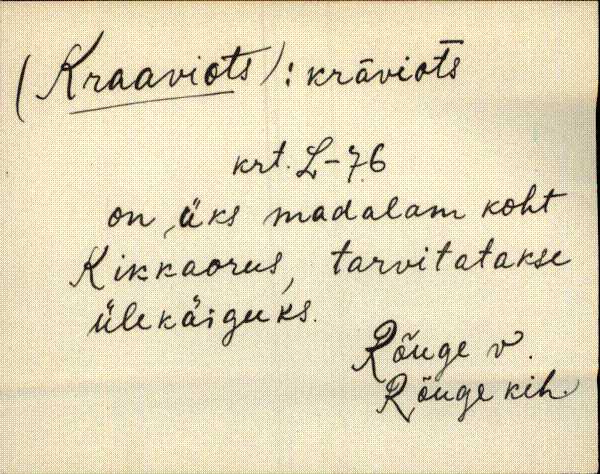 (Kraaviots): krāviot̄s
krt. L-76
on üks madalam koht
Kikkaorus, tarvitatakse
ülekäiguks.
Rõuge v.
Rõuge kih.